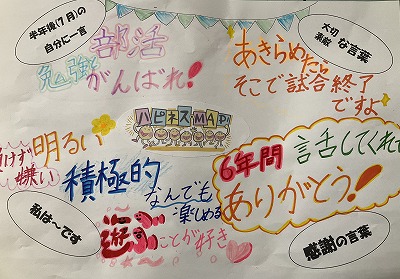 半年後(7月)の
自分に一言
部活
勉強と
がんばれ!
大切な言葉
素敵
あきらめたら
そこで試合終了
ですよ
ハピネスMAP
負けず
嫌い
明るい
積極的
なんでも
楽しめる
遊ぶことが好き
私は〜です
6年間
言舌してくれて
ありがとう!
感謝の言葉